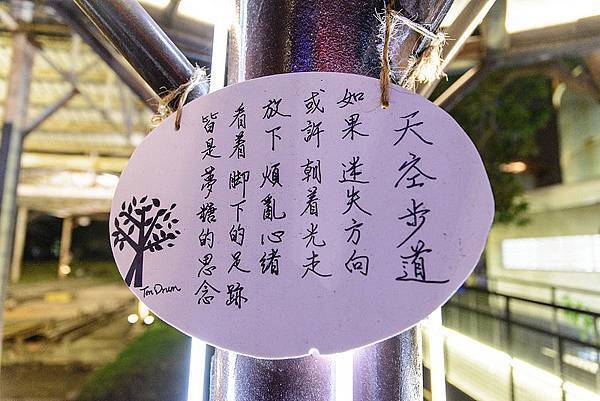 天空步道
如果迷失方向
或許朝着光走
放下煩亂心緒
看着腳下的足跡
皆是夢糖的思念
Ton Drum